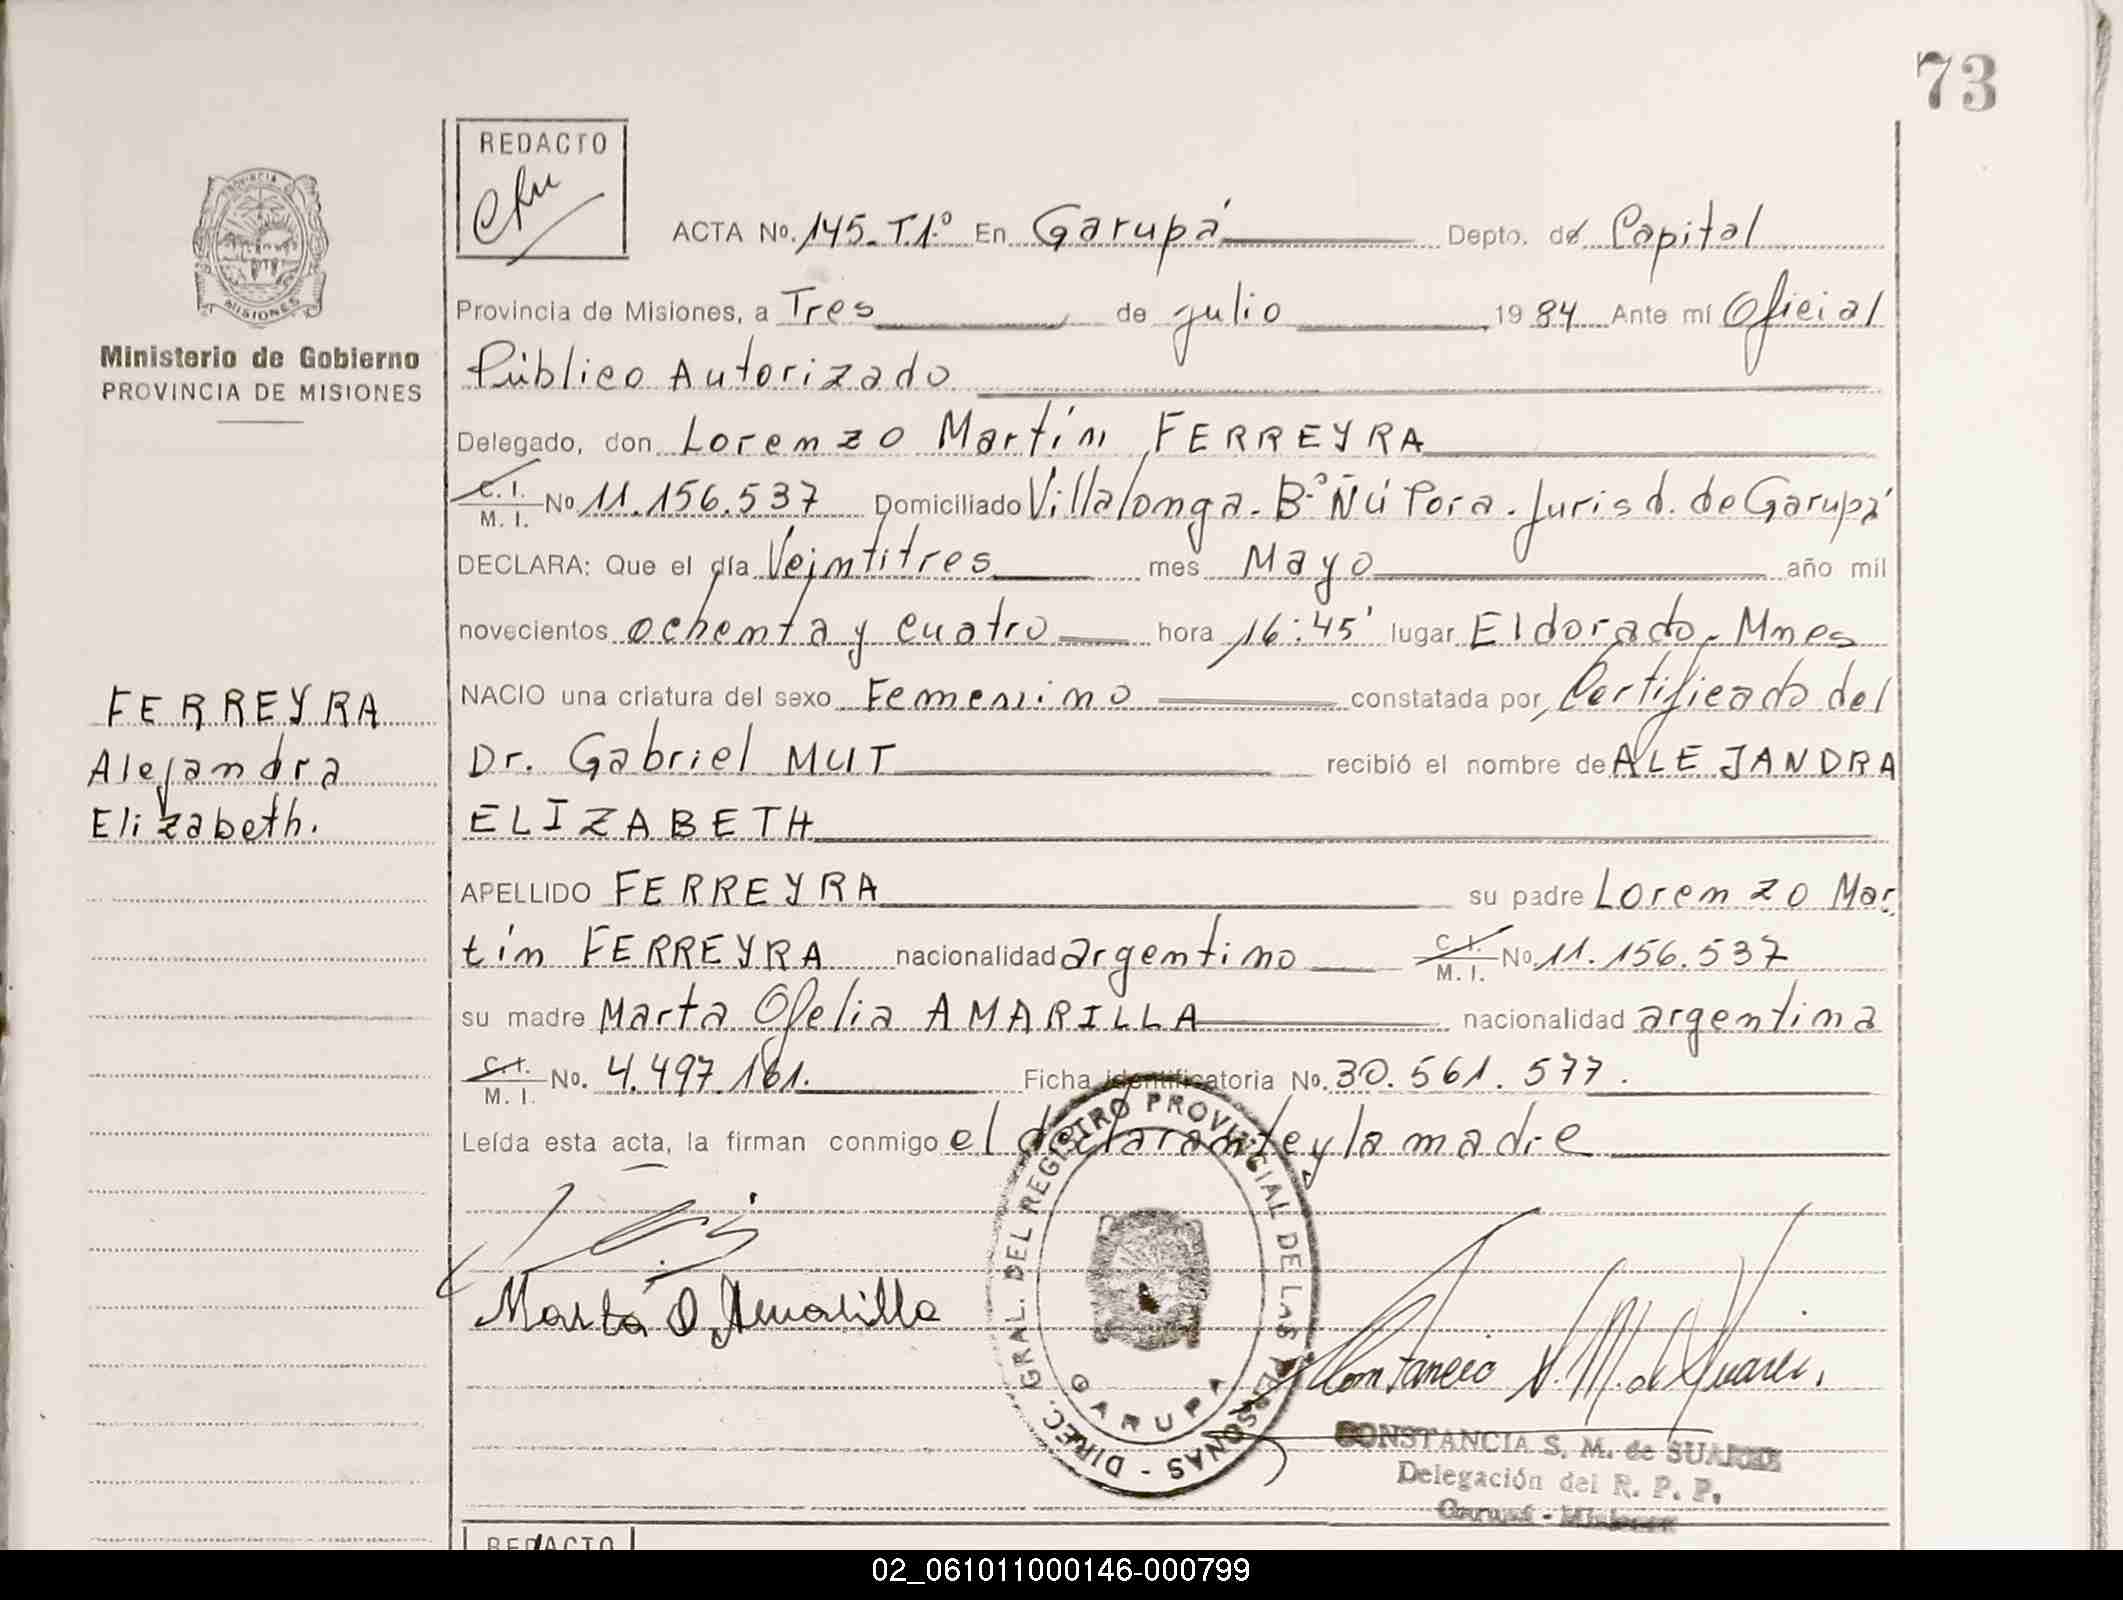 73
REDACTO
PROVINCIA DE
MISIONES
Ministerio de Gobierno
PROVINCIA DE MISIONES
ACTA No. 145. T.1.º En Garupá Depto. de Capital
Provincia de Misiones, a Tres de julio 19 84 Ante mí Oficial
Público Autorizado
Delegado, don Lorenzo Martín FERREYRA
C. I. / M. I. No 11.156.537 Domiciliado Villalonga. B.º Ñú Pora. Jurisd. de Garupá
DECLARA: Que el día Veintitres mes Mayo año mil
novecientos ochenta y cuatro hora 16:45' lugar Eldorado. Mnes
NACIO una criatura del sexo Femenino constatada por Certificado del
Dr. Gabriel MUT recibió el nombre de ALEJANDRA
ELIZABETH
APELLIDO FERREYRA su padre Lorenzo Mar
tín FERREYRA nacionalidad argentino C. I. / M. I. No. 11.156.537
su madre Marta Ofelia AMARILLA nacionalidad argentina
C. I. / M. I. No. 4.497.161. Ficha identificatoria No. 30.561.577.
Leída esta acta, la firman conmigo el declarante y la madre
FERREYRA
Alejandra
Elizabeth.
Marta O. Amarilla
DIREC. GRAL. DEL REGISTRO PROVINCIAL DE LAS PERSONAS -
GARUPA
Constancia S. M. de Suarez.
CONSTANCIA S. M. de SUAREZ
Delegación del R. P. P.
Garupá - Misiones
REDACTO
02_061011000146-000799